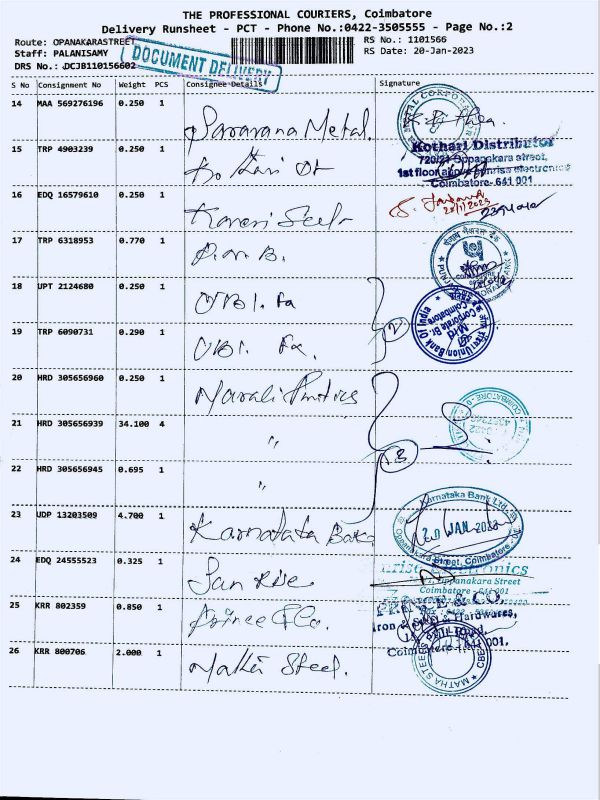 THE PROFESSIONAL COURIERS, Coimbatore
Delivery Runsheet - PCT - Phone No.:0422-3505555 - Page No.:2
Route: OPANAKARASTREET
Staff: PALANISAMY
DRS No.: DCJB110156602
DOCUMENT DELIVERY
RS No.: 1101566
RS Date: 20-Jan-2023
S No Consignment No Weight PCS Consignee Details Signature
14 MAA 569276196 0.250 1 Saravana Metal.
15 TRP 4903239 0.250 1
Kothari Distributor
720/21 Oppanakara street,
1st floor above sunrise electronics
Coimbatore- 641 001
16 EDQ 16579610 0.250 1 Kaveri Steels
17 TRP 6318953 0.770 1 P.N.B.
18 UPT 2124680 0.250 1 UBI. Fa
Union Bank Of India
Mid Corporate Br.
Coimbatore
19 TRP 6090731 0.290 1 UBI. Fa.
20 HRD 305656960 0.250 1
21 HRD 305656939 34.100 4 "
22 HRD 305656945 0.695 1 "
23 UDP 13203509 4.700 1 Karnataka Bank
Karnataka Bank Ltd.
20 JAN 2023
Oppanakara Street, Coimbatore
24 EDQ 24555523 0.325 1 Sun Rise
Oppanakara Street
Coimbatore - 641 001
25 KRR 802359 0.850 1 Prince & Co.
Iron & Hardwares,
26 KRR 800706 2.000 1 Matha Steel.
MATHA STEEL
CBE